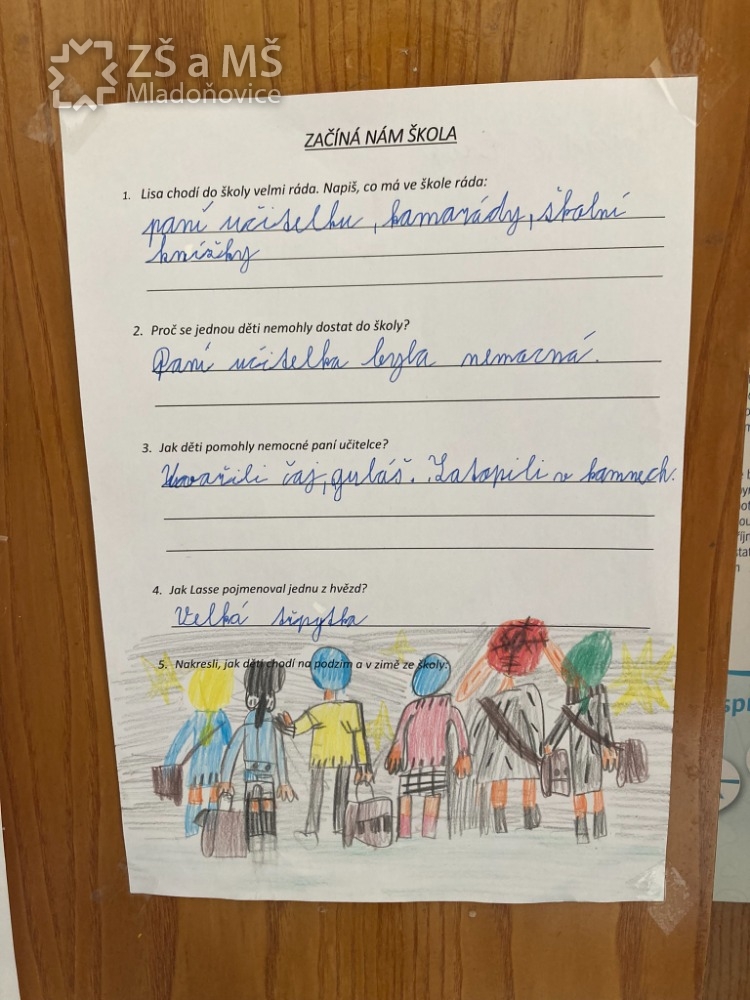 ZŠ a MŠ
Mladoňovice
ZAČÍNÁ NÁM ŠKOLA
1. Lisa chodí do školy velmi ráda. Napiš, co má ve škole ráda:
paní učitelku, kamarády, školní
knížky
2. Proč se jednou děti nemohly dostat do školy?
Paní učitelka byla nemocná.
3. Jak děti pomohly nemocné paní učitelce?
Uvařili čaj, guláš. Zatopili v kamnech.
4. Jak Lasse pojmenoval jednu z hvězd?
Velká třpytka
5. Nakresli, jak děti chodí na podzim a v zimě ze školy: